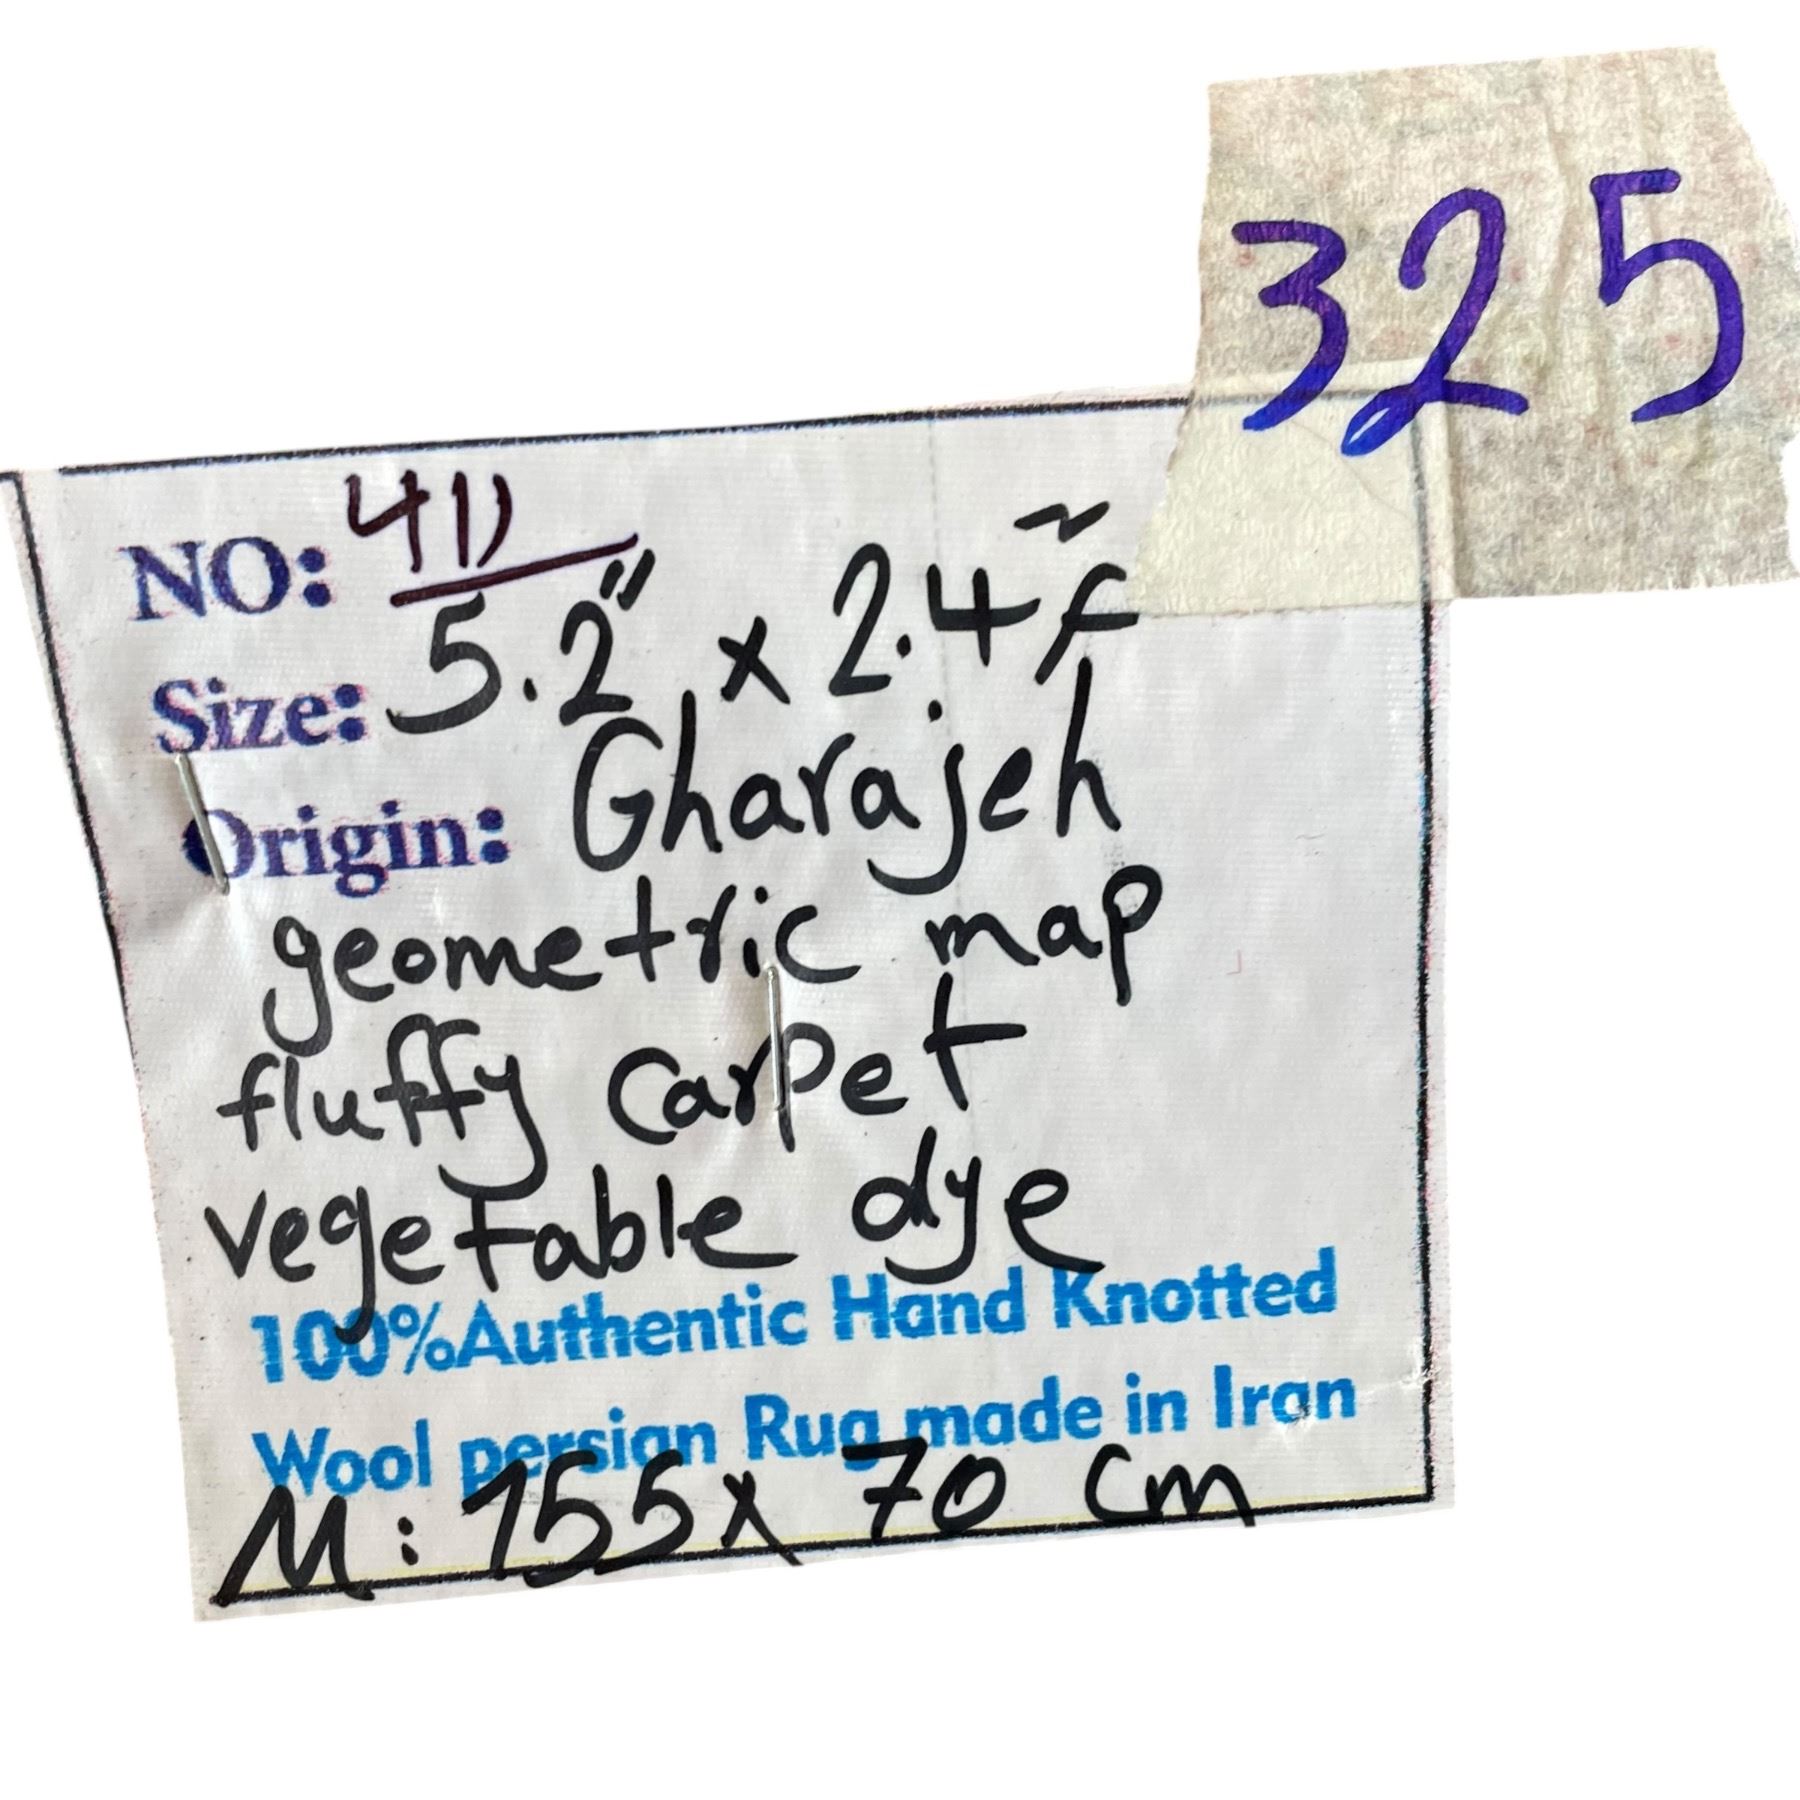 325
NO: 411
Size: 5.2" x 2.4 f
Origin: Gharajeh
geometric map
fluffy carpet
vegetable dye
100%Authentic Hand Knotted
Wool persian Rug made in Iran
M: 155x 70 cm